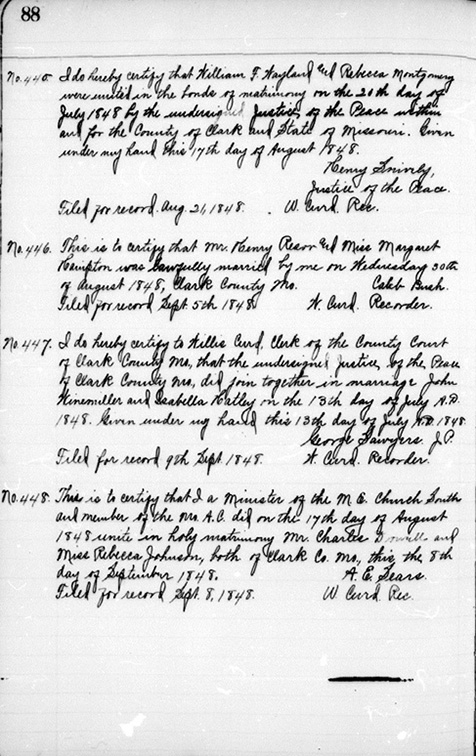 88
No. 445. I do hereby certify that William F. Wayland and Rebecca Montgomery
were united in the bonds of matrimony on the 20th day of
July 1848 by the undersigned Justice, of the Peace within
and for the County of Clark and State of Missouri. Given
under my hand this 17th day of August 1848.
Henry Snively,
Justice of the Peace.
Filed for record Aug. 21, 1848. W. Curd Rec.
No. 446. This is to certify that Mr. Henry Resor and Miss Margaret
Hampton was lawfully married by me on Wednesday 30th
of August 1848, Clark County Mo. Caleb Bush.
Filed for record Sept. 5th 1848. W. Curd Recorder.
No. 447. I do hereby certify to Willis Curd, Clerk of the County Court
of Clark County Mo., that the undersigned Justice, of the Peace
of Clark County Mo, did join together in marriage John
Winemiller and Isabella Hatley on the 13th day of July A.D.
1848. Given under my hand this 13th day of July A.D. 1848
George Sawyers J.P.
Filed for record 9th Sept. 1848. W. Curd. Recorder.
No. 448. This is to certify that I a Minister of the M. E. Church South
and member of the Mo. A.C. did on the 17th day of August
1848 unite in holy matrimony Mr. Charles and
Miss Rebecca Johnson, both of Clark Co. Mo., this the 8th
day of September 1848. A. E. Sears.
Filed for record Sept. 8, 1848. W Curd Rec.